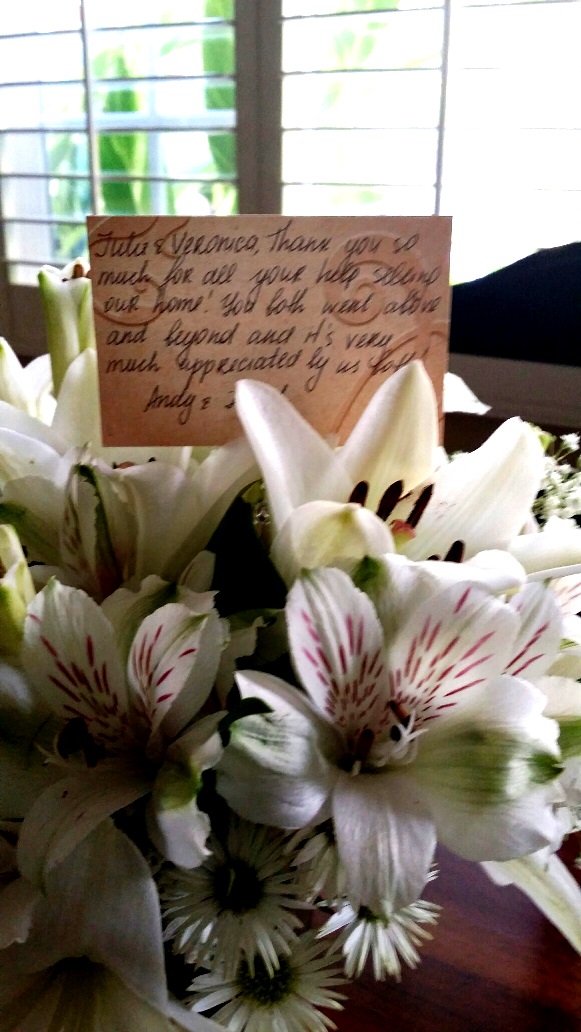 Julie & Veronica, Thank you so
much for all your help selling
our home! You both went above
and beyond and it's very
much appreciated by us both!
Andy &